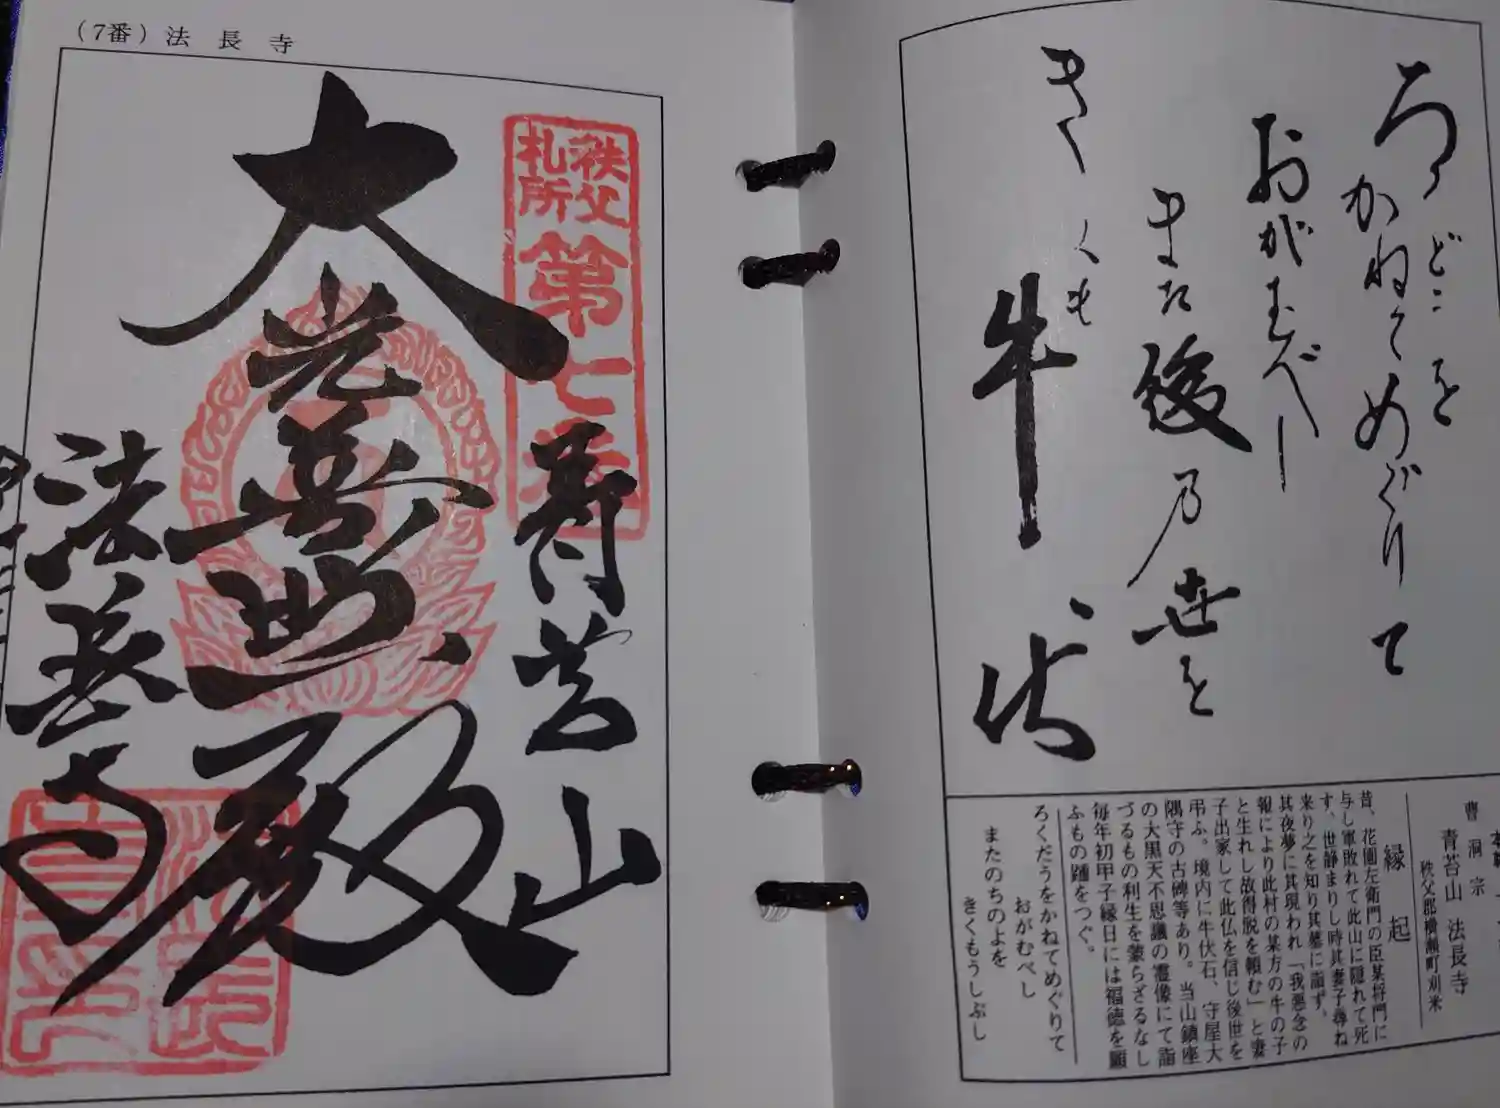 (7番) 法長寺
秩父
札所
第七番
青苔山
大光普照殿
法長寺
ろくどうを
かねてめぐりて
おがむべし
また後乃世を
きくも
牛伏
曹洞宗
青苔山 法長寺
秩父郡横瀬町刈米
縁起
昔、花園左衛門の臣某将門に
与し軍敗れて此山に隠れて死
す、世静まりし時其妻子尋ね
来り之を知り其墓に詣ず、
其夜夢に其現われ「我悪念の
報により此村の某方の牛の子
と生れし故得脱を頼む」と妻
子出家して此仏を信じ後世を
弔ふ。境内に牛伏石、守屋大
隅守の古碑等あり。当山鎮座
の大黒天不思議の霊像にて詣
づるもの利生を蒙らざるなし
毎年初甲子縁日には福徳を願
ふもの踵をつぐ。
ろくだうをかねてめぐりて
おがむべし
またのちのよを
きくもうしぶし